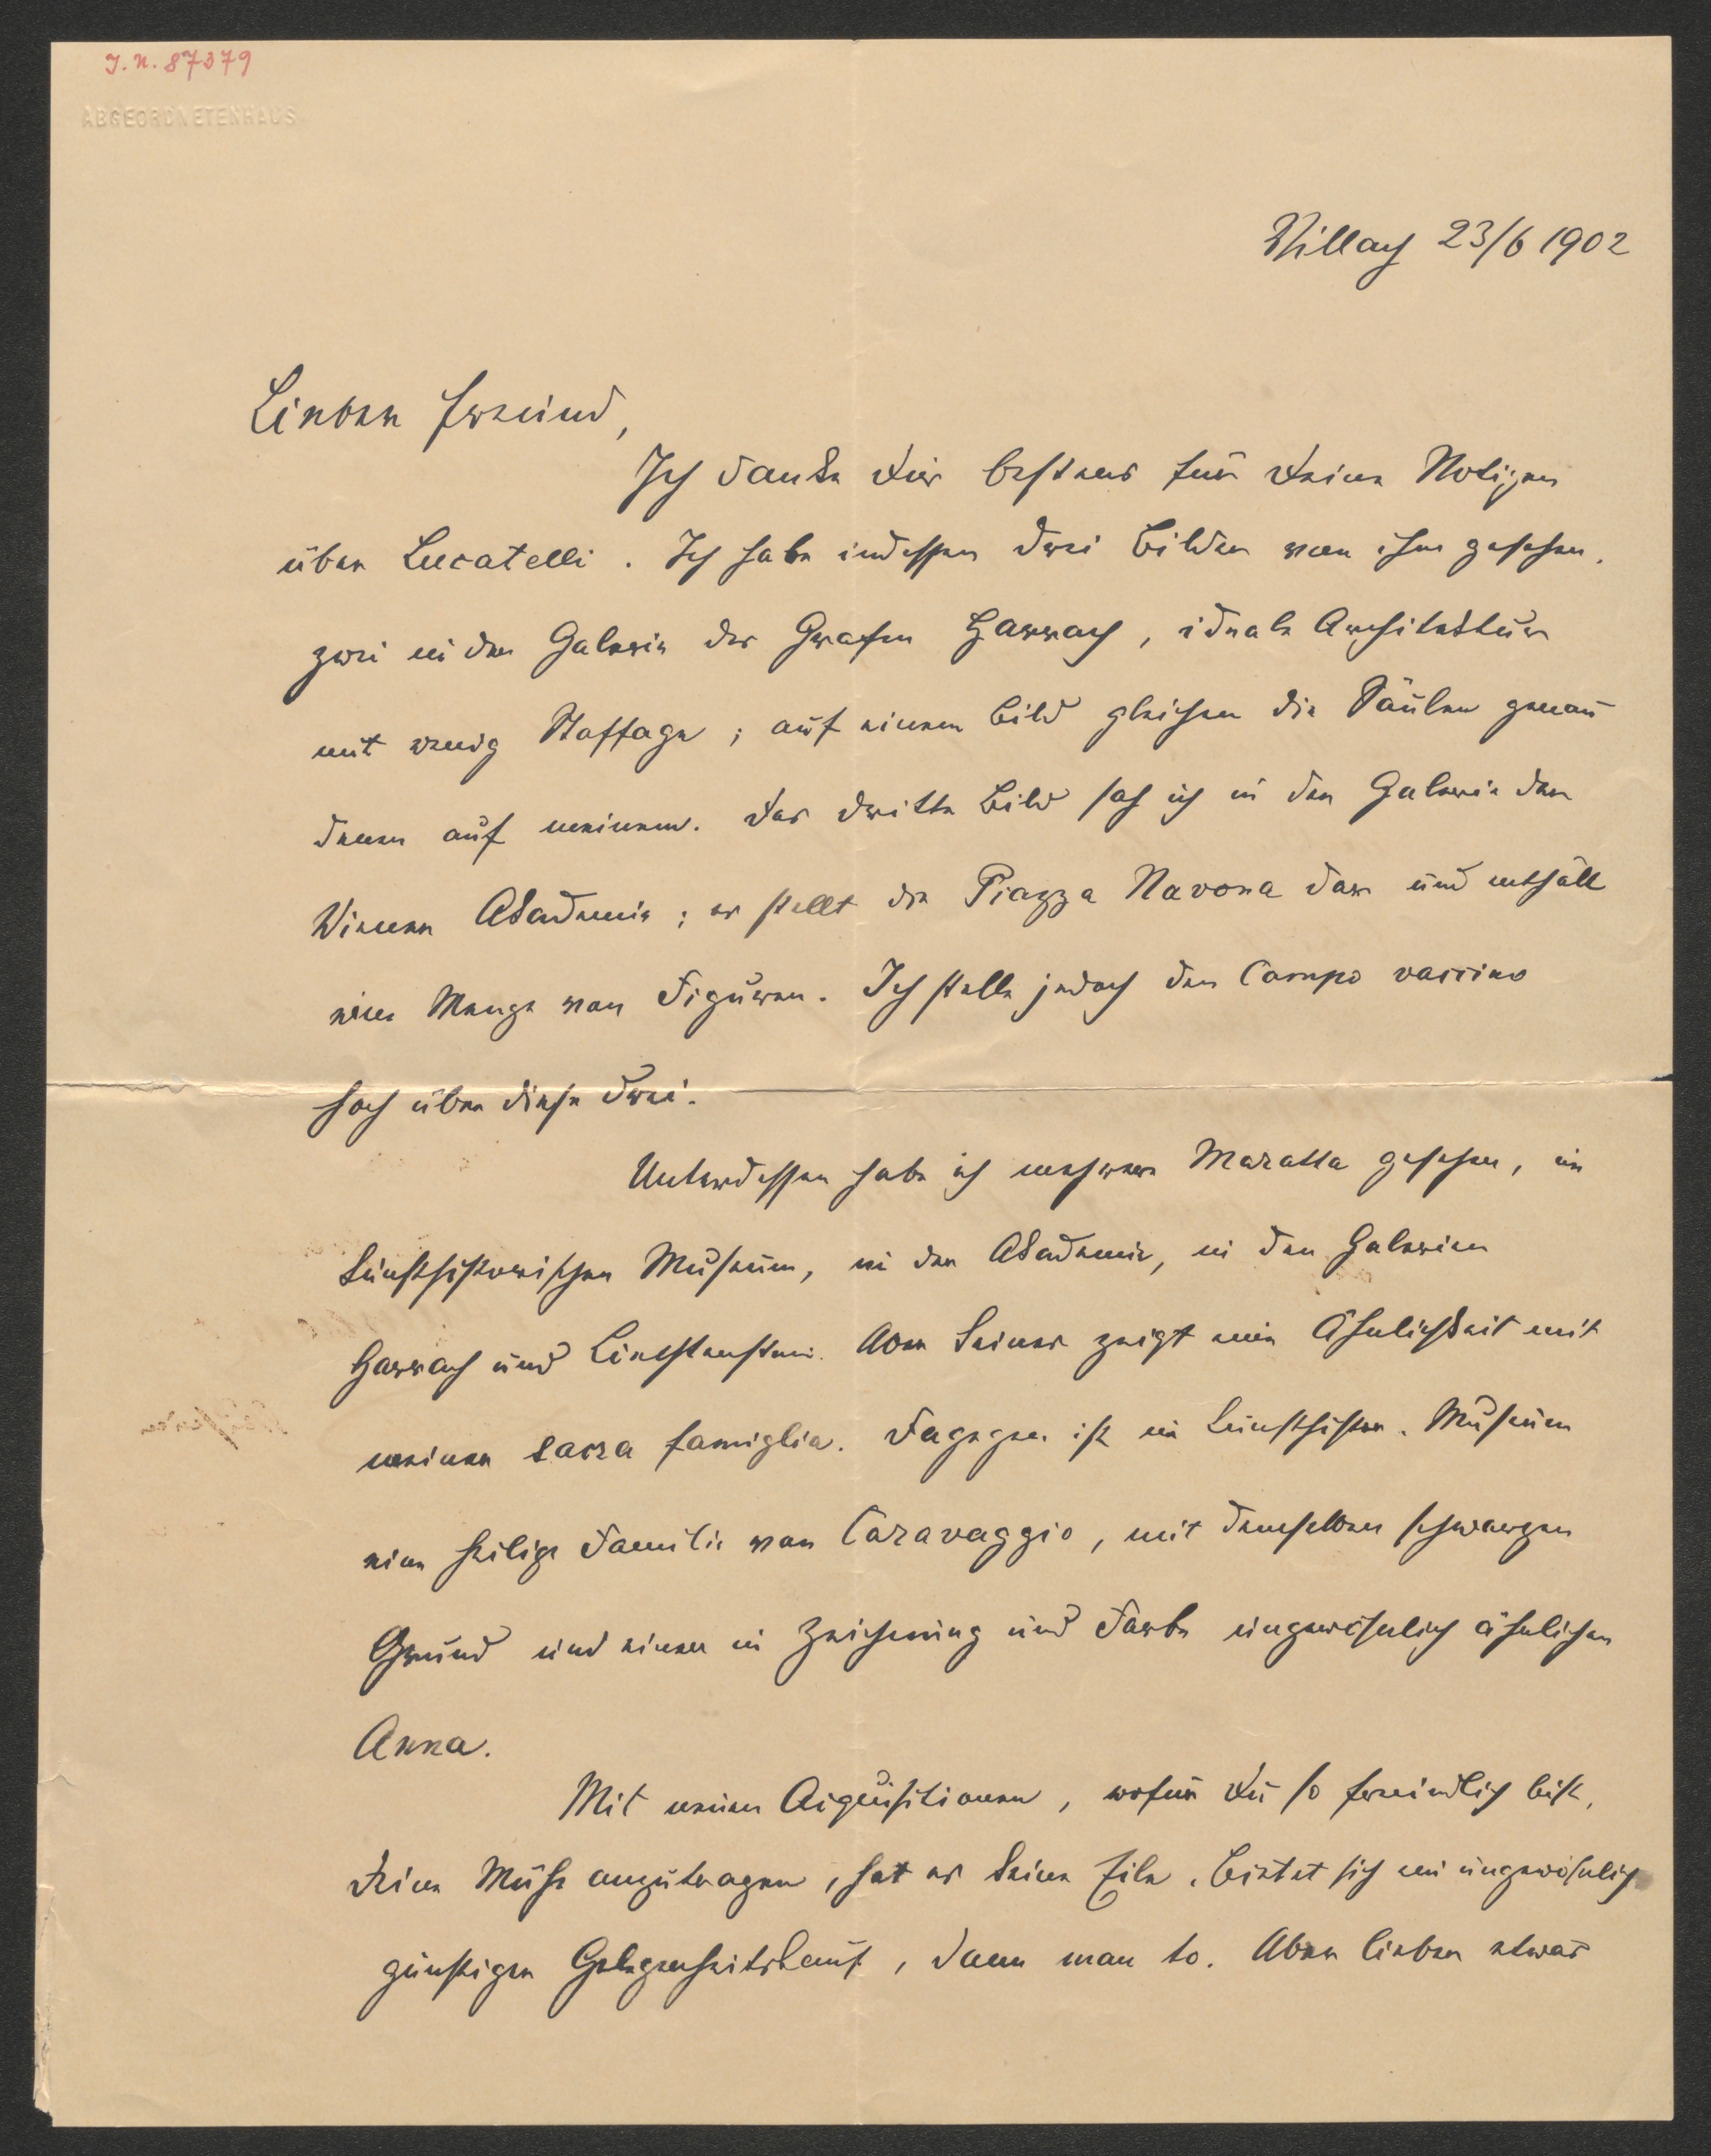 J. N. 87379
ABGEORDNETENHAUS
Villach 23/6 1902
Lieber Freund,
Ich danke Dir bestens für Deine Notizen
über Lucatelli. Ich habe indessen drei Bilder von ihm gesehen,
zwei in der Galerie des Grafen Harrach, ideale Architektur
mit wenig Staffage; auf einem Bild gleichen die Säulen genau
denen auf meinem. Das dritte Bild sah ich in der Galerie der
Wiener Akademie; es stellt die Piazza Navona dar und enthält
eine Menge von Figuren. Ich stelle jedoch den Campo vaccino
hoch über diese drei.
Unterdessen habe ich mehrere Maratta gesehen, im
kunsthistorischen Museum, in der Akademie, in den Galerien
Harrach und Liechtenstein. Aber keiner zeigt eine Ähnlichkeit mit
meiner sacra famiglia. Dagegen ist im kunsthistor. Museum
eine heilige Familie von Caravaggio, mit demselben schwarzen
Grund und einer in Zeichnung und Farbe ungewöhnlich ähnlichen
Anna.
Mit neuen Aiquisitionen, wofür Du so freundlich bist,
Deine Muße anzutragen, hat es keine Eile. Bietet sich ein ungewöhnlich
günstiger Gelegenheitskauf, dann man to. Aber lieber etwas